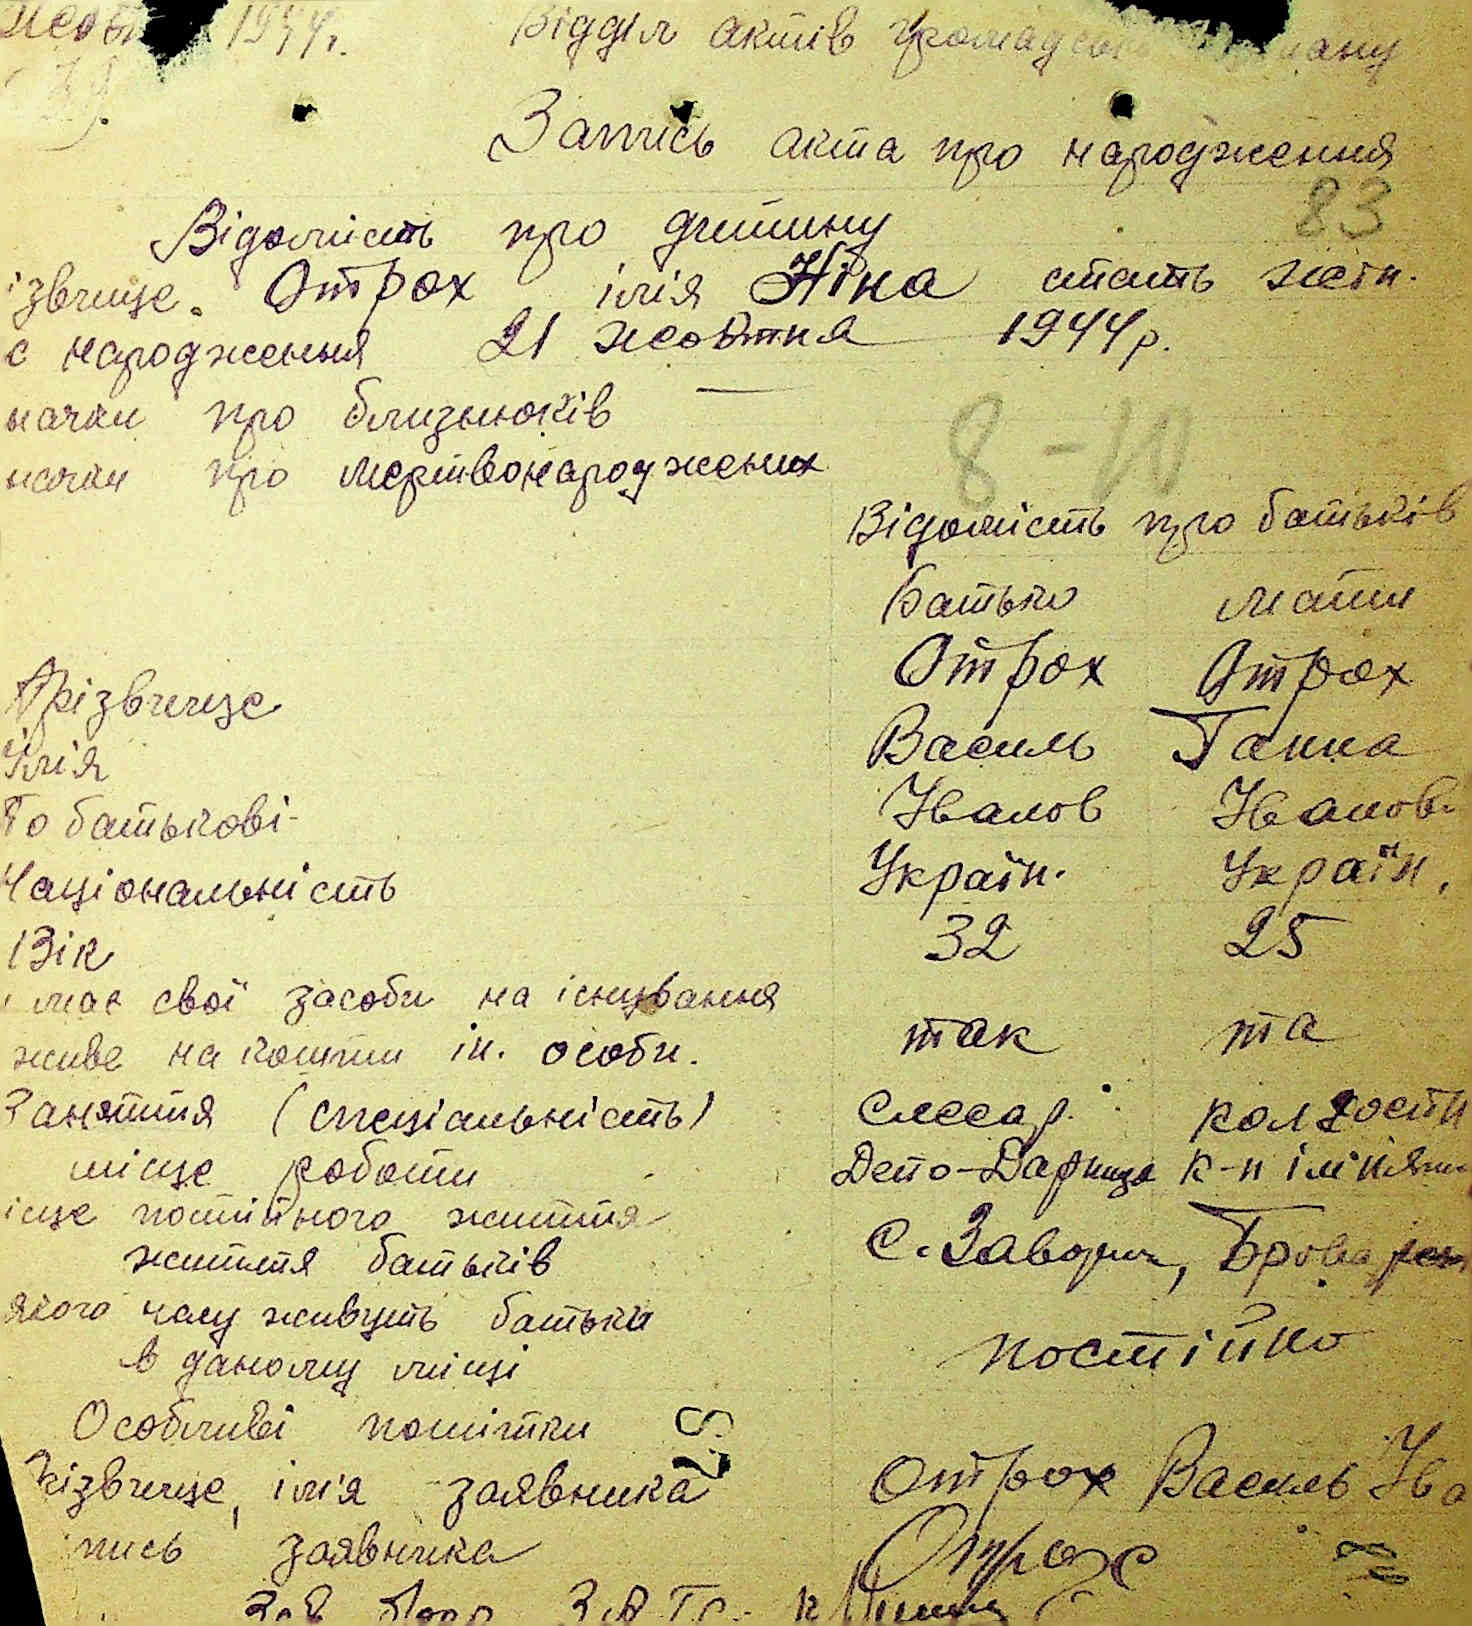 1944р. Відділ актів громадсь
Запись акта про народження
83
Відомість про дитину
ізвище. Отрох імія Ніна стать жін.
є народження 21 жовтня 1944р.
начки про близнюків —
начки про мертвонароджених
8 - IV
Відомість про батьків
Батько мати
Прізвище Отрох Отрох
Імія Василь Ганна
По батькові Іванов Іванов.
Національність Україн. Україн.
Вік 32 25
має свої засоби на існування
живе на кошти ін. особи. так та
Заняття (спеціальність) слесар. колгоспн
місце роботи Депо-Дарница к-п
ісце постійного життя
життя батьків С. Заворич, Бровар
якого часу живуть батьки
в даному місці постійно
Особливі помітки
різвище, імія заявника Отрох Василь Іва
пись заявника Отрох
Зав. ЗАГС.